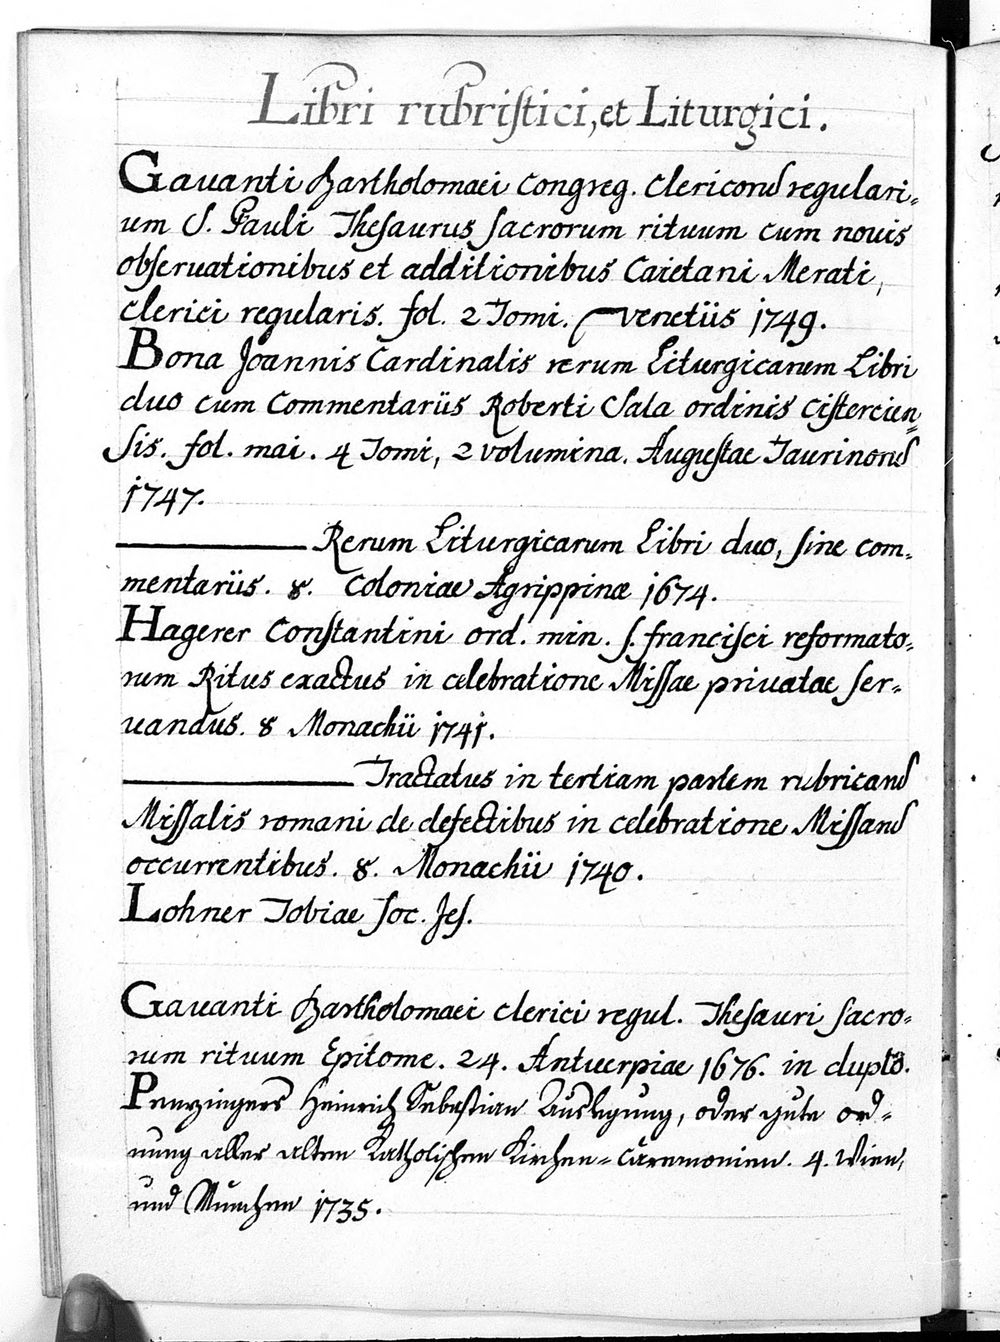 Libri rubristici, et Liturgici.
Gauanti Bartholomaei Congreg. Clericorũ regulari-
um S. Pauli Thesaurus sacrorum rituum cum nouis
obseruationibus et additionibus Caietani Merati,
Clerici regularis. fol. 2 Tomi. Venetiis 1749.
Bona Joannis Cardinalis rerum Liturgicarum Libri
duo cum Commentariis Roberti Sala ordinis Cistercien=
sis. fol. mai. 4 Tomi, 2 volumina. Augustae Taurinorũ
1747.
——— Rerum Liturgicarum Libri duo, sine com-
mentariis. 8. Coloniae Agrippinæ 1674.
Hagerer Constantini ord. min. S. francisci reformato-
rum Ritus exactus in celebratione Missae priuatae ser-
uandus. 8 Monachii 1741.
——— Tractatus in tertiam partem rubricarũ
Missalis romani de defectibus in celebratione Missarũ
occurrentibus. 8. Monachii 1740.
Lohner Tobiae Soc. Jes.
Gauanti Bartholomaei Clerici regul. Thesauri sacro-
rum rituum Epitome. 24. Antuerpiae 1676. in duplo.
Penzingers Heinrich Sebastian Auslegung, oder gute ord-
nung aller alten Katholischen Kirchen=Cäremonien. 4. Wien,
und München 1735.